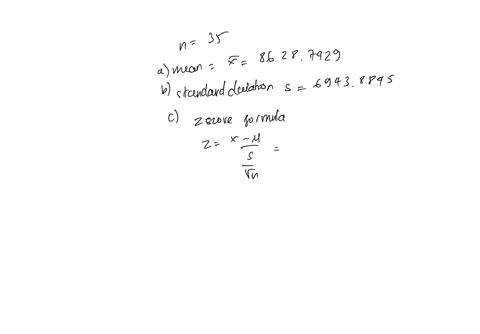 n = 35
a) mean = x̄ = 8628.7429
b) standard deviation s = 6943.8845
c) z score formula
z = x - μ / s / √n =